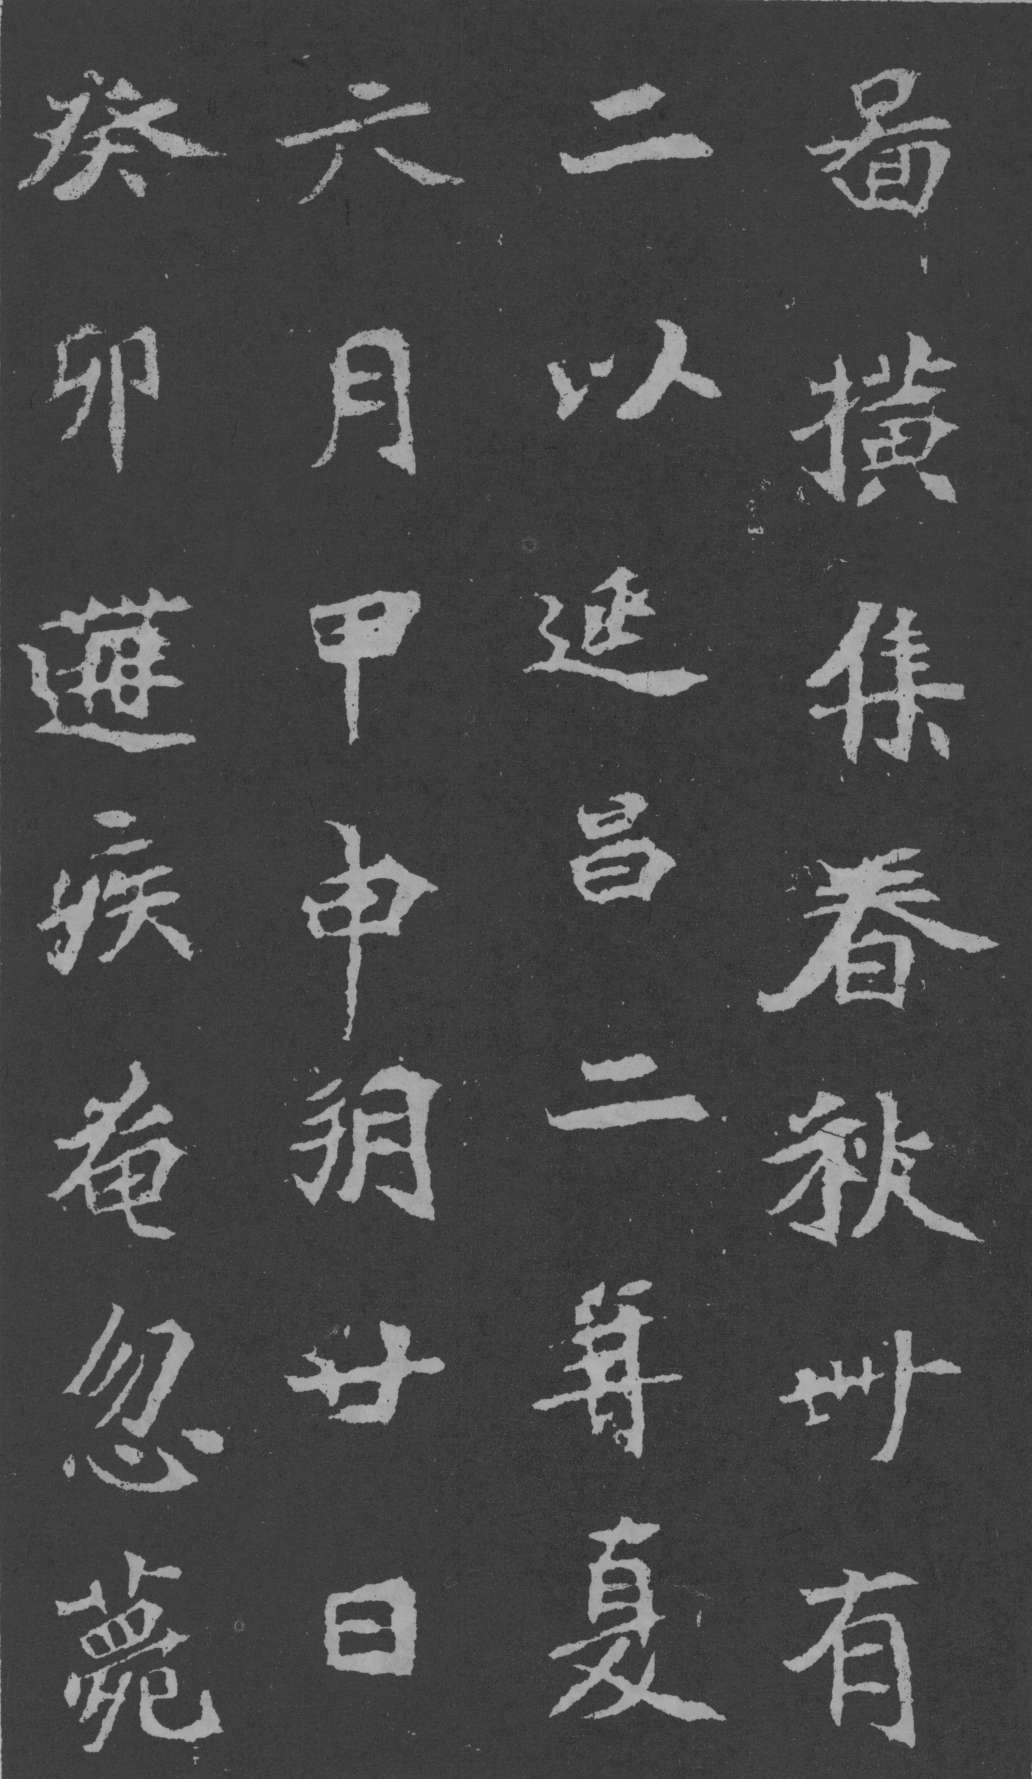 啚橫集春秋卅有
二以延昌二年夏
六月甲申朔廿日
癸卯遘疾奄忽薨